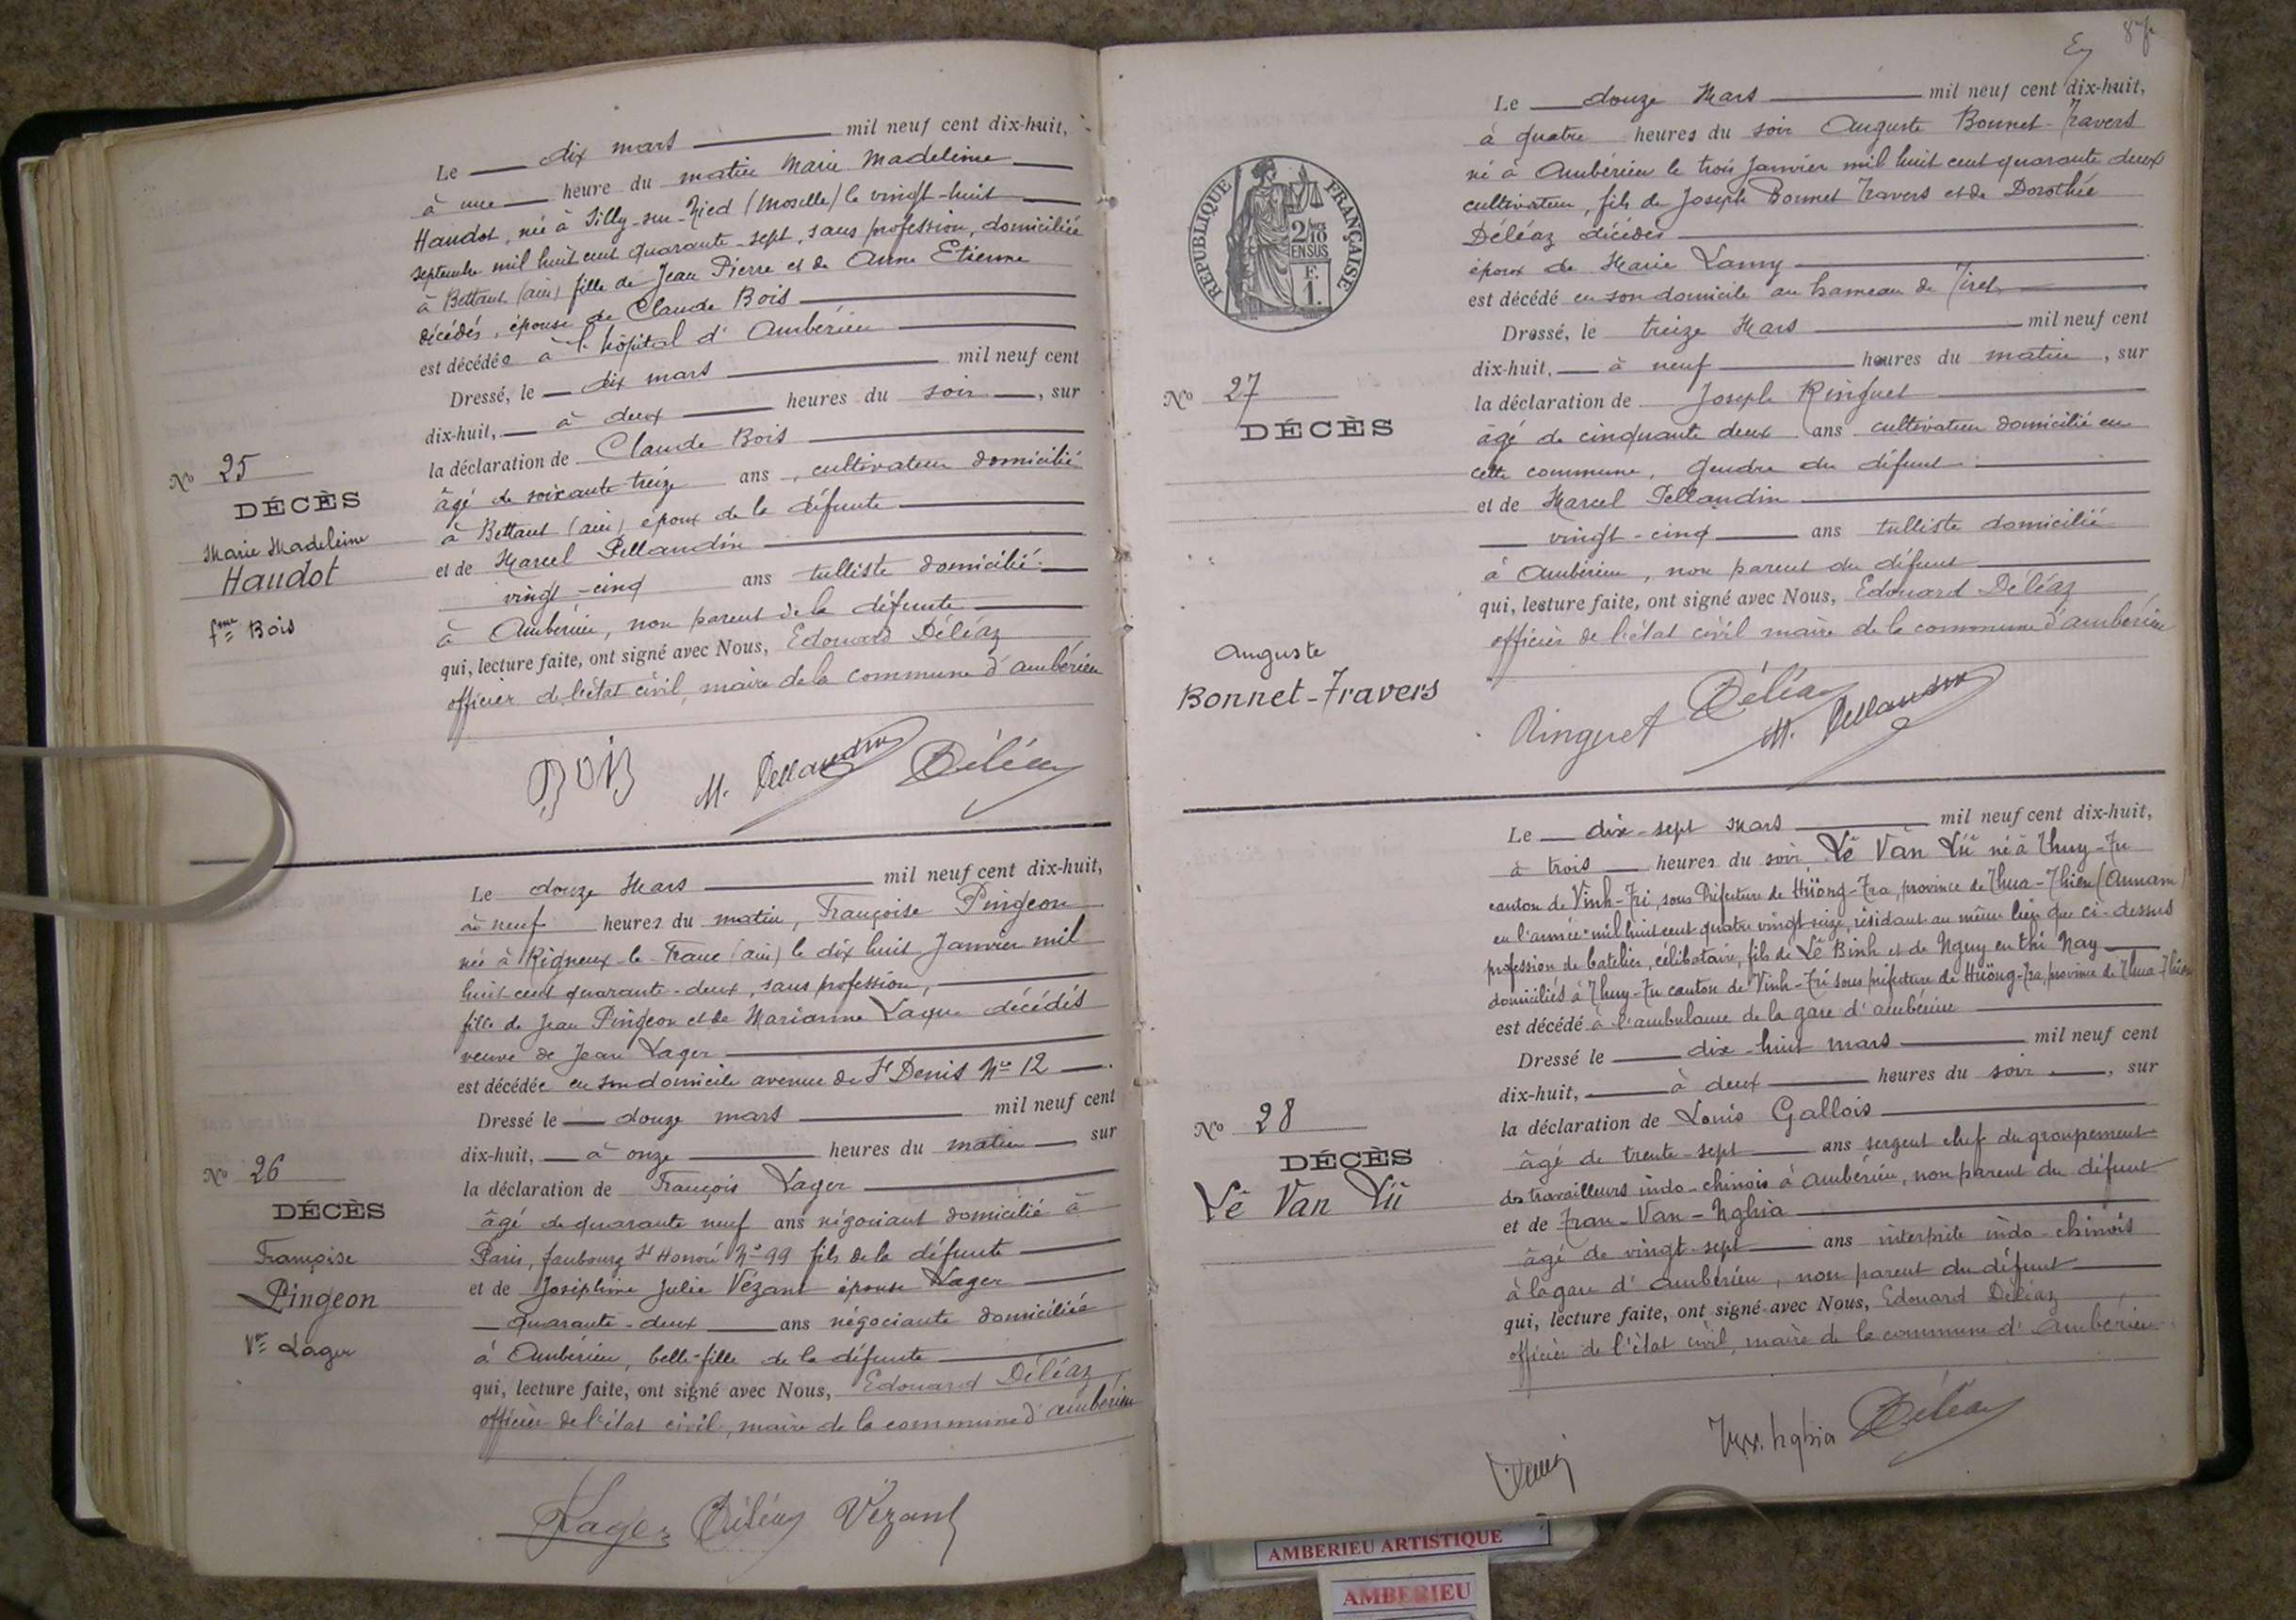 Le dix mars mil neuf cent dix-huit,
à une heure du matin Marie Madeleine
Haudot, née à Silly-sur-Nied (Moselle) le vingt-huit
septembre mil huit cent quarante-sept, sans profession, domiciliée
à Bettant (ain) fille de Jean Pierre et de Anne Etienne
décédés, épouse de Claude Bois
est décédée à l'hôpital d'Ambérieu
Dressé, le dix mars mil neuf cent
dix-huit, à deux heures du soir, sur
la déclaration de Claude Bois
âgé de soixante treize ans, cultivateur domicilié
à Bettant (ain) époux de la défunte
et de Marcel Pellaudin
vingt-cinq ans tulliste domicilié
à Ambérieu, non parent de la défunte
qui, lecture faite, ont signé avec Nous, Edouard Déléaz
officier de l'état civil, maire de la commune d'ambérieu
No 25
DÉCÈS
Marie Madeleine
Haudot
fme Bois
BOIS M. Pellaudin Déléaz
Le douze Mars mil neuf cent dix-huit,
à neuf heures du matin, Françoise Pingeon
née à Rigneux-le-Franc (ain) le dix huit Janvier mil
huit cent quarante-deux, sans profession,
fille de Jean Pingeon et de Marianne Laque décédés
veuve de Jean Lager
est décédée en son domicile avenue de St Denis No 12
Dressé le douze mars mil neuf cent
dix-huit, à onze heures du matin sur
la déclaration de François Lager
âgé de quarante neuf ans négociant domicilié à
Paris, faubourg St Honoré No 99 fils de la défunte
et de Joséphine Julie Vézant épouse Lager
quarante-deux ans négociante domiciliée
à Ambérieu, belle-fille de la défunte
qui, lecture faite, ont signé avec Nous, Edouard Déléaz
officier de l'état civil, maire de la commune d'ambérieu
No 26
DÉCÈS
Françoise
Pingeon
Vve Lager
Lager Déléaz Vézant
87
Le douze Mars mil neuf cent dix-huit,
à quatre heures du soir Auguste Bonnet-Travers
né à Ambérieu le trois Janvier mil huit cent quarante deux
cultivateur, fils de Joseph Bonnet Travers et de Dorothée
Déléaz décédés
époux de Marie Lamy
est décédé en son domicile au hameau de Tiret
Dressé, le treize Mars mil neuf cent
dix-huit, à neuf heures du matin, sur
la déclaration de Joseph Ringuet
âgé de cinquante deux ans cultivateur domicilié en
cette commune, gendre du défunt
et de Marcel Pellaudin
vingt-cinq ans tulliste domicilié
à Ambérieu, non parent du défunt
qui, lecture faite, ont signé avec Nous, Edouard Deléaz
officier de l'état civil maire de la commune d'ambérieu
REPUBLIQUE FRANÇAISE
2/10
EN SUS
F.
1.
No 27
DÉCÈS
Auguste
Bonnet-Travers
Ringuet Déléaz M. Pellaudin
Le dix-sept Mars mil neuf cent dix-huit,
à trois heures du soir Lê Van Lü né à Thuy-Tu
canton de Vinh-Tri, sous Préfecture de Hüong-Tra, province de Thua-Thien (Annam)
en l'année mil huit cent quatre vingt seize, résidant au même lieu que ci-dessus
profession de batelier, célibataire, fils de Lê Binh et de Nguy en thi Nay
domiciliés à Thuy-Tu canton de Vinh-Tri sous préfecture de Hüong-Tra, province de Thua-Thien
est décédé à l'ambulance de la gare d'ambérieu
Dressé le dix-huit mars mil neuf cent
dix-huit, à deux heures du soir, sur
la déclaration de Louis Gallois
âgé de trente-sept ans sergent chef du groupement
des travailleurs indo-chinois à Ambérieu, non parent du défunt
et de Tran-Van-Nghia
âgé de vingt-sept ans interprète indo-chinois
à la gare d'Ambérieu, non parent du défunt
qui, lecture faite, ont signé avec Nous, Edouard Déléaz
officier de l'état civil, maire de la commune d'Ambérieu
No 28
DÉCÈS
Lê Van Lü
Nghia Déléaz
AMBERIEU ARTISTIQUE
AMBERIEU